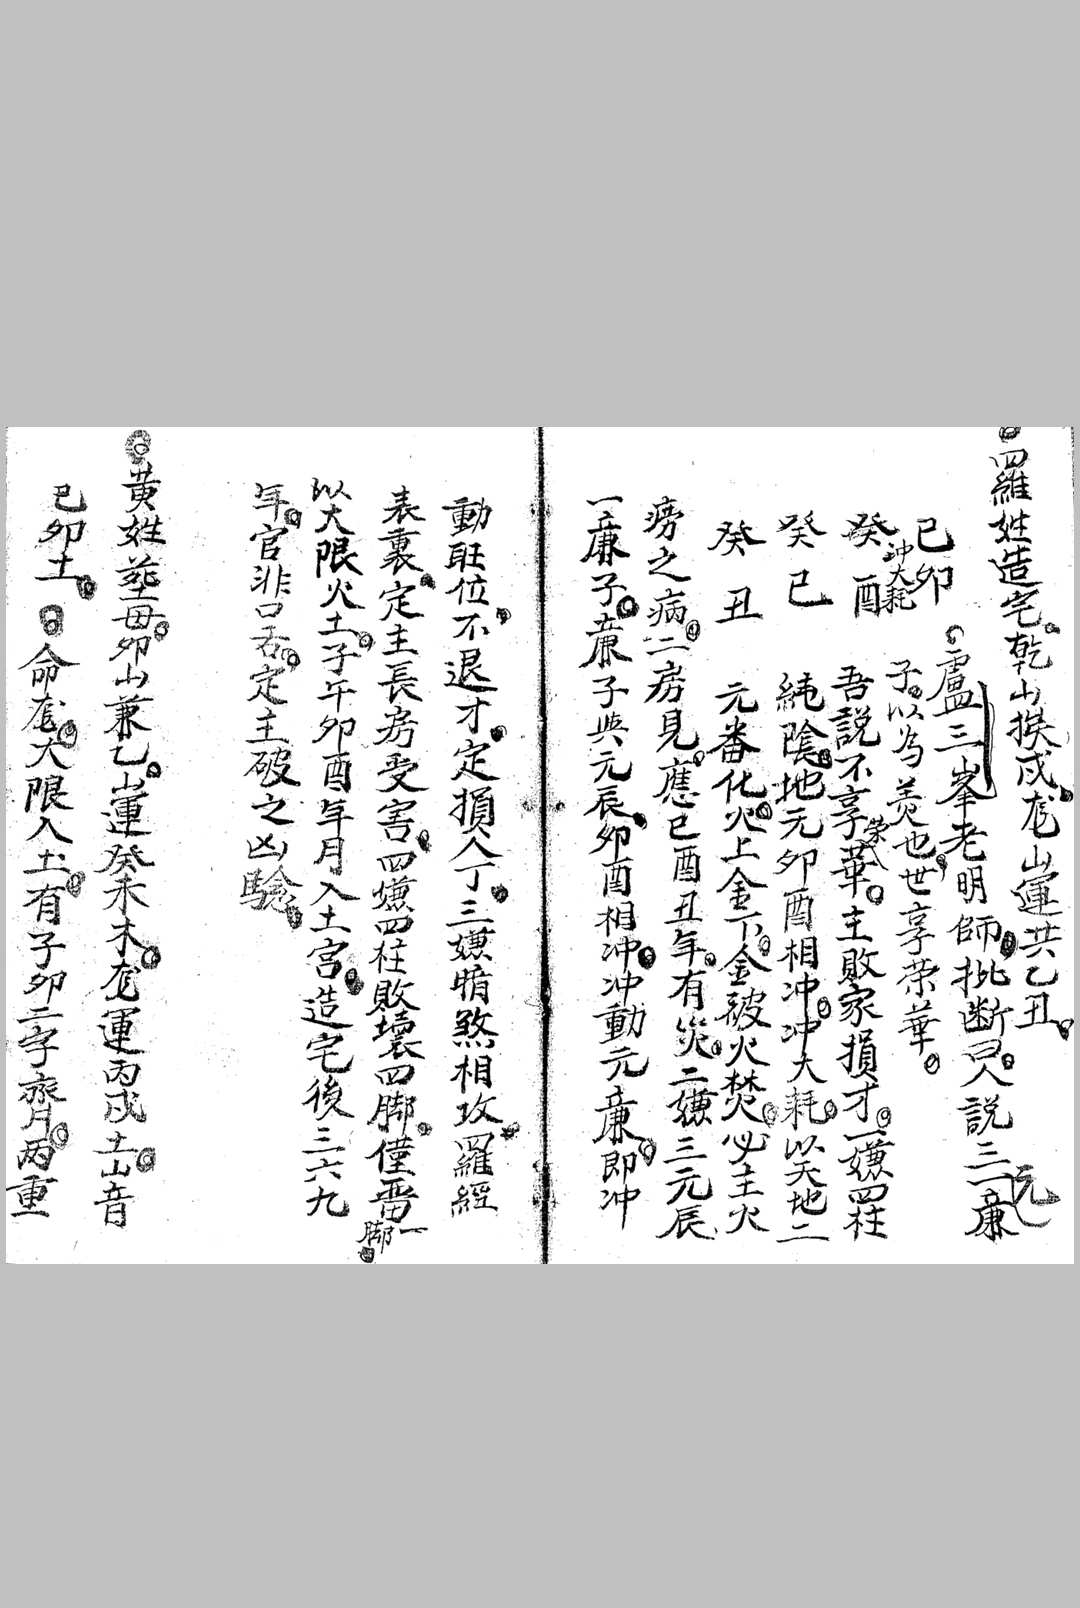 四羅姓造宅乾山挨戍龙山運共乙丑
己卯
盧三峯老明師批断只人説三元一亷
子以为美也世享荣華
癸酉
冲大耗
吾説不享荣華主敗家損才一嫌四柱
癸巳
純陰地元卯酉相冲冲大耗以天地二
癸丑
元番化火上金下金被火焚必主火
痨之病二房見應巳酉丑年有災二嫌三元辰
一亷子亷子與元辰卯酉相冲冲動元亷即冲
動旺位不退才定損人丁三嫌暗煞相攻羅經
表裏定主長房受害四嫌四柱敗壞四脚僅畱一脚
以大限火土子午卯酉年月入土宫造宅後三六九
年官非口舌定主破之凶驗
黄姓塟毋卯山兼乙山運癸未木龙運丙戍土山音
己卯土
命龙大限入土有子卯二字齊月两重